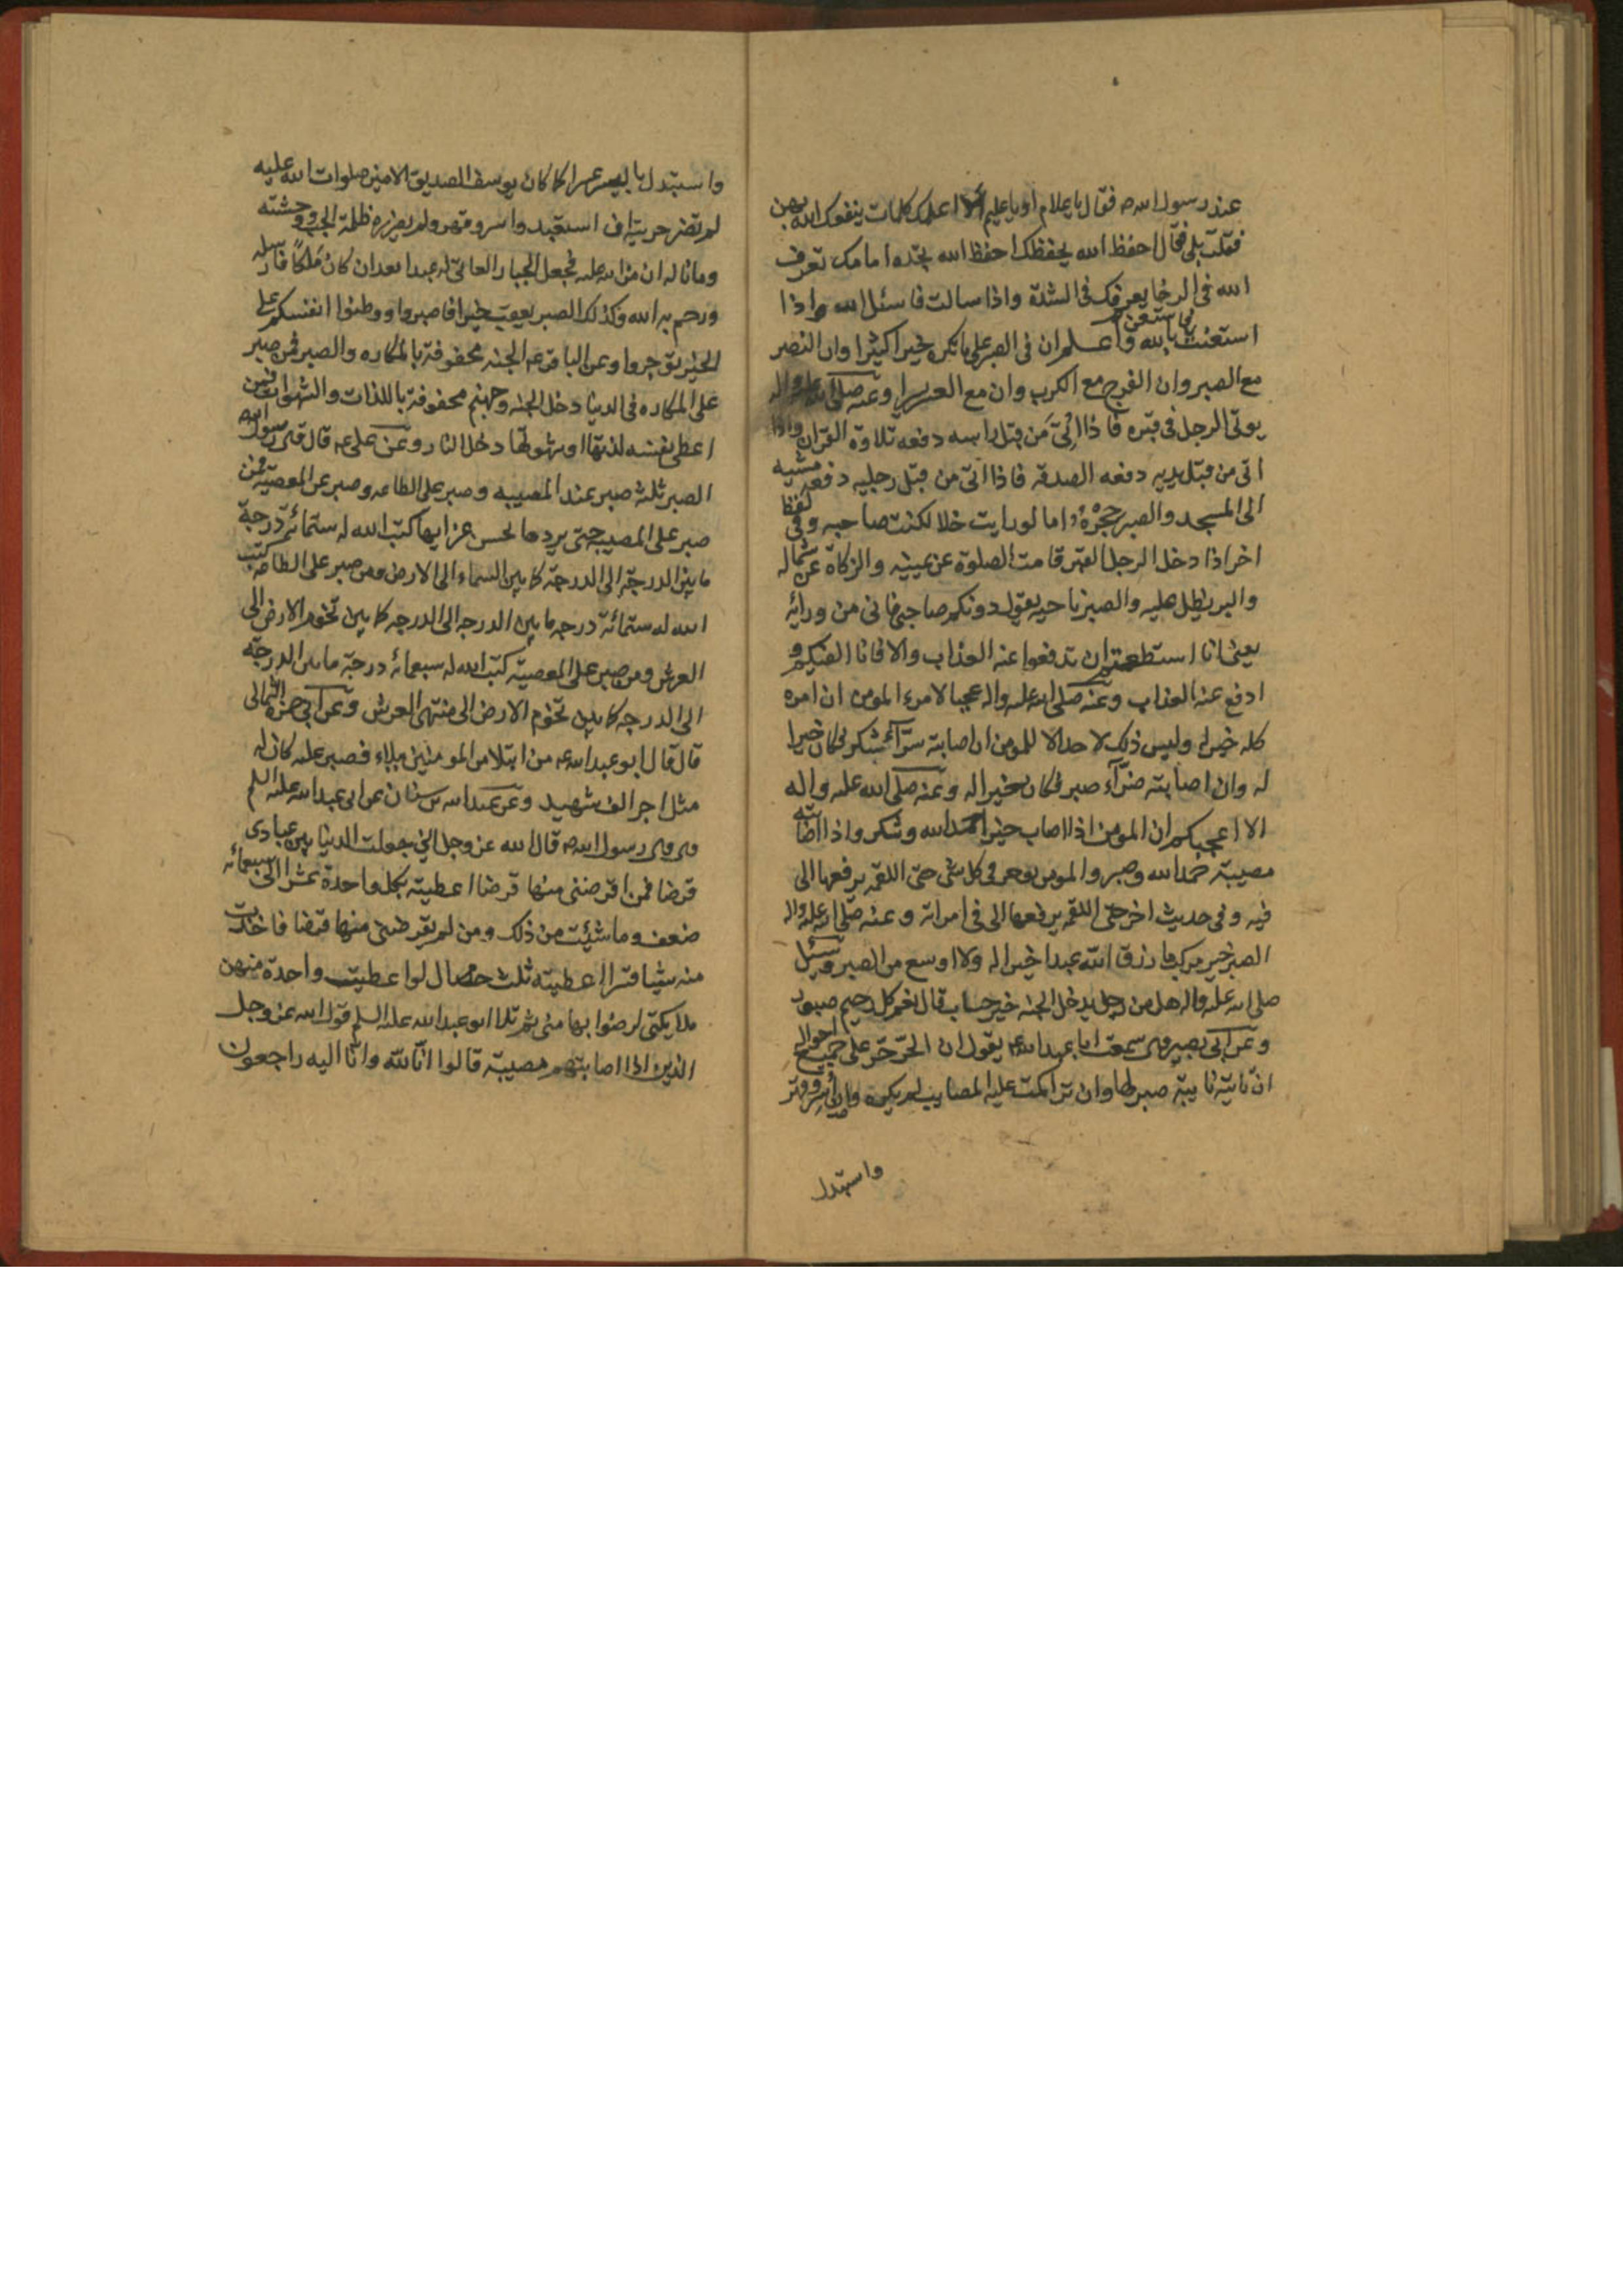 عند رسول الله ص فقال يا غلام او يا غليم الا اعلمك كلمات ينفعك الله بهن
فقلت بلى فقال احفظ الله يحفظك احفظ الله تجده امامك تعرف
الله فى الرخا يعرفك فى الشدة واذا سالت فاسئل الله واذا
استعنت فاستعن بالله واعلم ان فى الصبر على ما تكره خيرا كثيرا وان النصر
مع الصبر وان الفرج مع الكرب وان مع العسر يسرا وعنه صلى الله عليه واله
يوتى الرجل فى قبره فاذا اتى من قبل راسه دفعه تلاوة القران واذا
اتى من قبل يديه دفعه الصدقه فاذا اتى من قبل رجليه دفعه مشيه
الى المسجد والصبر حجزة اما لو رايت خللا لكنت صاحبه وفى لفظ
اخر اذا دخل الرجل القبر قامت الصلوة عن يمينه والزكاة عن شماله
والبر يظل عليه والصبر ناحيه يقول دونكم صاحبى فانى من ورائه
يعنى ان استطعتم ان تدفعوا عنه العذاب والا فانا اكفيكم و
ادفع عنه العذاب وعنه صلى الله عليه واله عجبا لامرء المومن ان امره
كله خير له وليس ذلك لاحد الا للمومن ان اصابته سرآء شكر فكان خيرا
له وان اصابته ضرآء صبر فكان خيرا له وعنه صلى الله عليه واله
الا اعجبكم ان المومن اذا اصاب خيرا حمد الله وشكر واذا اصابته
مصيبة حمد الله وصبر والمومن يوجر فى كل شى حتى اللقمه يرفعها الى
فيه وفى حديث اخر حتى اللقمه يرفعها الى فى امراته وعنه صلى الله عليه واله
الصبر خير مركب ما رزق الله عبدا خيرا له ولا اوسع من الصبر وسئل
صلى الله عليه واله هل من رجل يدخل الجنه بغير حساب قال نعم كل رحيم صبور
وعن ابى بصير قال سمعت ابا عبد الله ع يقول ان الحر حر على جميع احواله
ان نابته نايبة صبر لها وان تراكمت عليه المصايب لم يكسره وان اسر وقهر
واستبدل
واستبدل باليسر عسرا كما كان يوسف الصديق الامين صلوات الله عليه
لم تضر حريته ان استعبد واسر وقهر ولم يضرره ظلمة الجب ووحشته
وما ناله ان من الله عليه فجعل الجبار العاتى له عبدا بعد ان كان ملكا فارسله
ورحم به الله وكذلك الصبر يعقب خيرا فاصبروا ووطنوا انفسكم على
الخير توجروا وعن الباقر ع الجنه محفوفة بالمكاره والصبر فمن صبر
على المكاره فى الدنيا دخل الجنه وجهنم محفوفة باللذات والشهوات فمن
اعطى نفسه لذتها وشهوتها دخل النار وعن على ع قال قال رسول الله
الصبر ثلثه صبر عند المصيبه وصبر على الطاعه وصبر عن المعصية فمن
صبر على المصيبه حتى يردها بحسن عزايها كتب الله له ستمائه درجة
ما بين الدرجة الى الدرجة كما بين السماء الى الارض ومن صبر على الطاعه كتب
الله له ستمائة درجه ما بين الدرجه الى الدرجه كما بين تخوم الارض الى
العرش ومن صبر على المعصية كتب الله له سبعمائه درجة ما بين الدرجة
الى الدرجه كما بين تخوم الارض الى منتهى العرش وعن ابى حمزه الثمالى
قال قال ابو عبد الله ع من ابتلا من المومنين ببلاء فصبر عليه كان له
مثل اجر الف شهيد وعن عبد الله بن سنان عن ابى عبد الله عليه السلم
قال قال رسول الله ص قال الله عز وجل انى جعلت الدنيا بين عبادى
قرضا فمن اقرضنى منها قرضا اعطيته بكل واحدة عشرا الى سبعمائه
ضعف وما شئت من ذلك ومن لم يقرضنى منها قرضا فاخذت
منه شيئا قسرا اعطيته ثلث خصال لو اعطيت واحدة منهن
ملايكتى لرضوا بها منى ثم تلا ابو عبد الله عليه السلم قول الله عز وجل
الذين اذا اصابتهم مصيبة قالوا انا لله وانا اليه راجعون